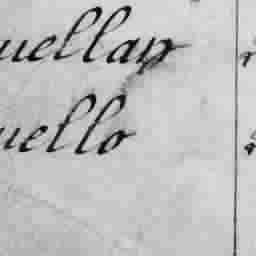 uellan
uello